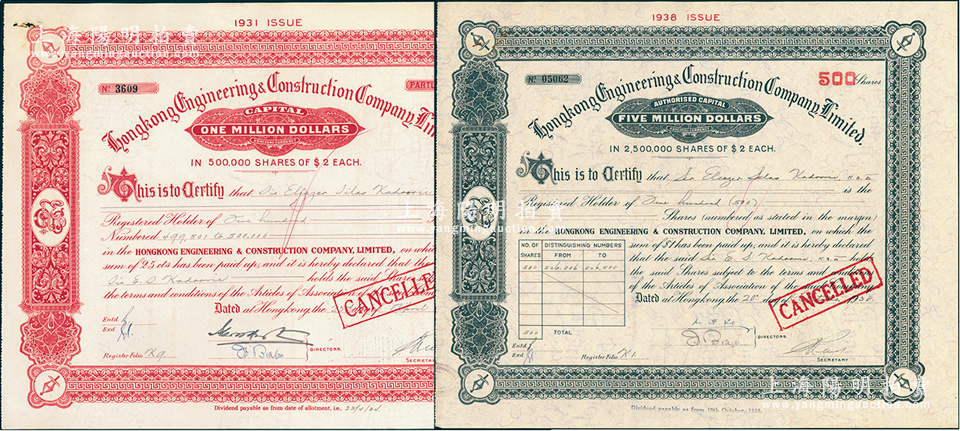 1931 ISSUE
Nº 3609
PARTL
Hongkong Engineering & Construction Company, Limited
CAPITAL
ONE MILLION DOLLARS
IN 500,000 SHARES OF $2 EACH.
This is to Certify that Sir Eleazer Silas Kadoorie
Registered Holder of Five hundred
Numbered 499,501 to 500,000
in the HONGKONG ENGINEERING & CONSTRUCTION COMPANY, LIMITED, on which
sum of 25 cts has been paid up; and it is hereby declared that the
Sir E. S. Kadoorie holds the said Shares
the terms and conditions of the Articles of Association
Dated at Hongkong the
CANCELLED
Entd.
Exd.
DIRECTORS.
Register Folio K9
SECRETARY
Dividend payable as from date of allotment, i.e., 23/4/31.
1938 ISSUE
Nº 05062
500 Shares
Hongkong Engineering & Construction Company, Limited.
AUTHORISED CAPITAL
FIVE MILLION DOLLARS
IN 2,500,000 SHARES OF $2 EACH.
This is to Certify that Sir Eleazer Silas Kadoorie, K.B.E. is the
Registered Holder of Five hundred (500)
Shares (numbered as stated in the margin)
in the HONGKONG ENGINEERING & CONSTRUCTION COMPANY, LIMITED, on which the
sum of $1 has been paid up; and it is hereby declared
that the said Sir E. S. Kadoorie, K.B.E. holds
the said Shares subject to the terms and
conditions of the Articles of Association of the said Company
NO. OF SHARES
DISTINGUISHING NUMBERS
FROM
TO
500
500 TOTAL
Dated at Hongkong the 28 1938
CANCELLED
Entd.
Exd.
DIRECTORS.
Register Folio K1
SECRETARY
Dividend payable as from 19th October, 1938.
上海陽明拍賣
www.yangmingauction.com